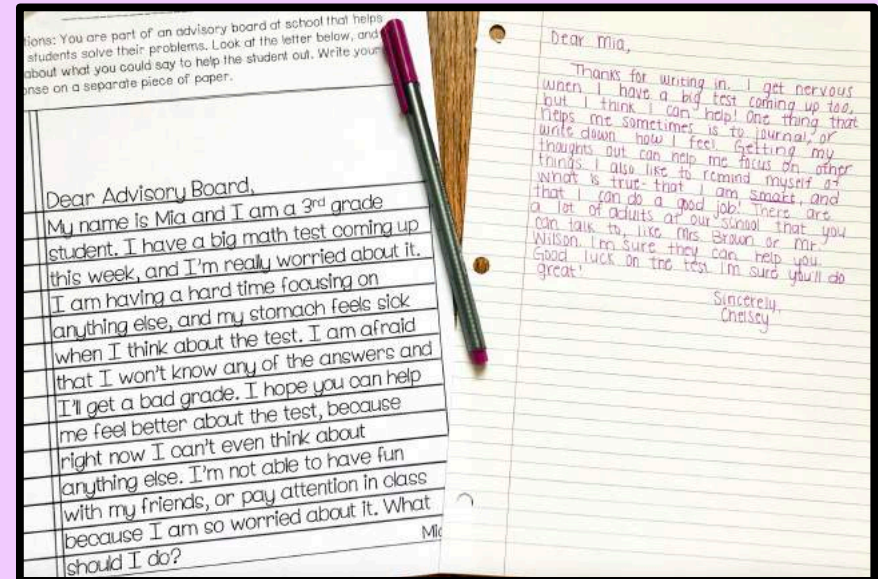 tions: You are part of an advisory board at school that helps
students solve their problems. Look at the letter below, and
about what you could say to help the student out. Write your
onse on a separate piece of paper.
Dear Advisory Board,
My name is Mia and I am a 3rd grade
student. I have a big math test coming up
this week, and I'm really worried about it.
I am having a hard time focusing on
anything else, and my stomach feels sick
when I think about the test. I am afraid
that I won't know any of the answers and
I'll get a bad grade. I hope you can help
me feel better about the test, because
right now I can't even think about
anything else. I'm not able to have fun
with my friends, or pay attention in class
because I am so worried about it. What
should I do?
Mia
Dear Mia,
Thanks for writing in. I get nervous
when I have a big test coming up too,
but I think I can help! One thing that
helps me sometimes is to journal, or
write down how I feel. Getting my
thoughts out can help me focus on other
things. I also like to remind myself of
what is true- that I am smart, and
that I can do a good job! There are
a lot of adults at our school that you
can talk to, like Mrs. Brown or Mr.
Wilson. I'm sure they can help you.
Good luck on the test. I'm sure you'll do
great!
Sincerely,
Chelsey